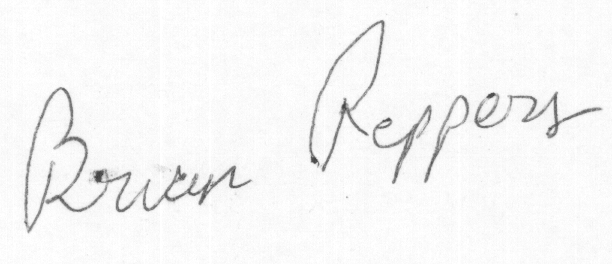 Brian Reppers